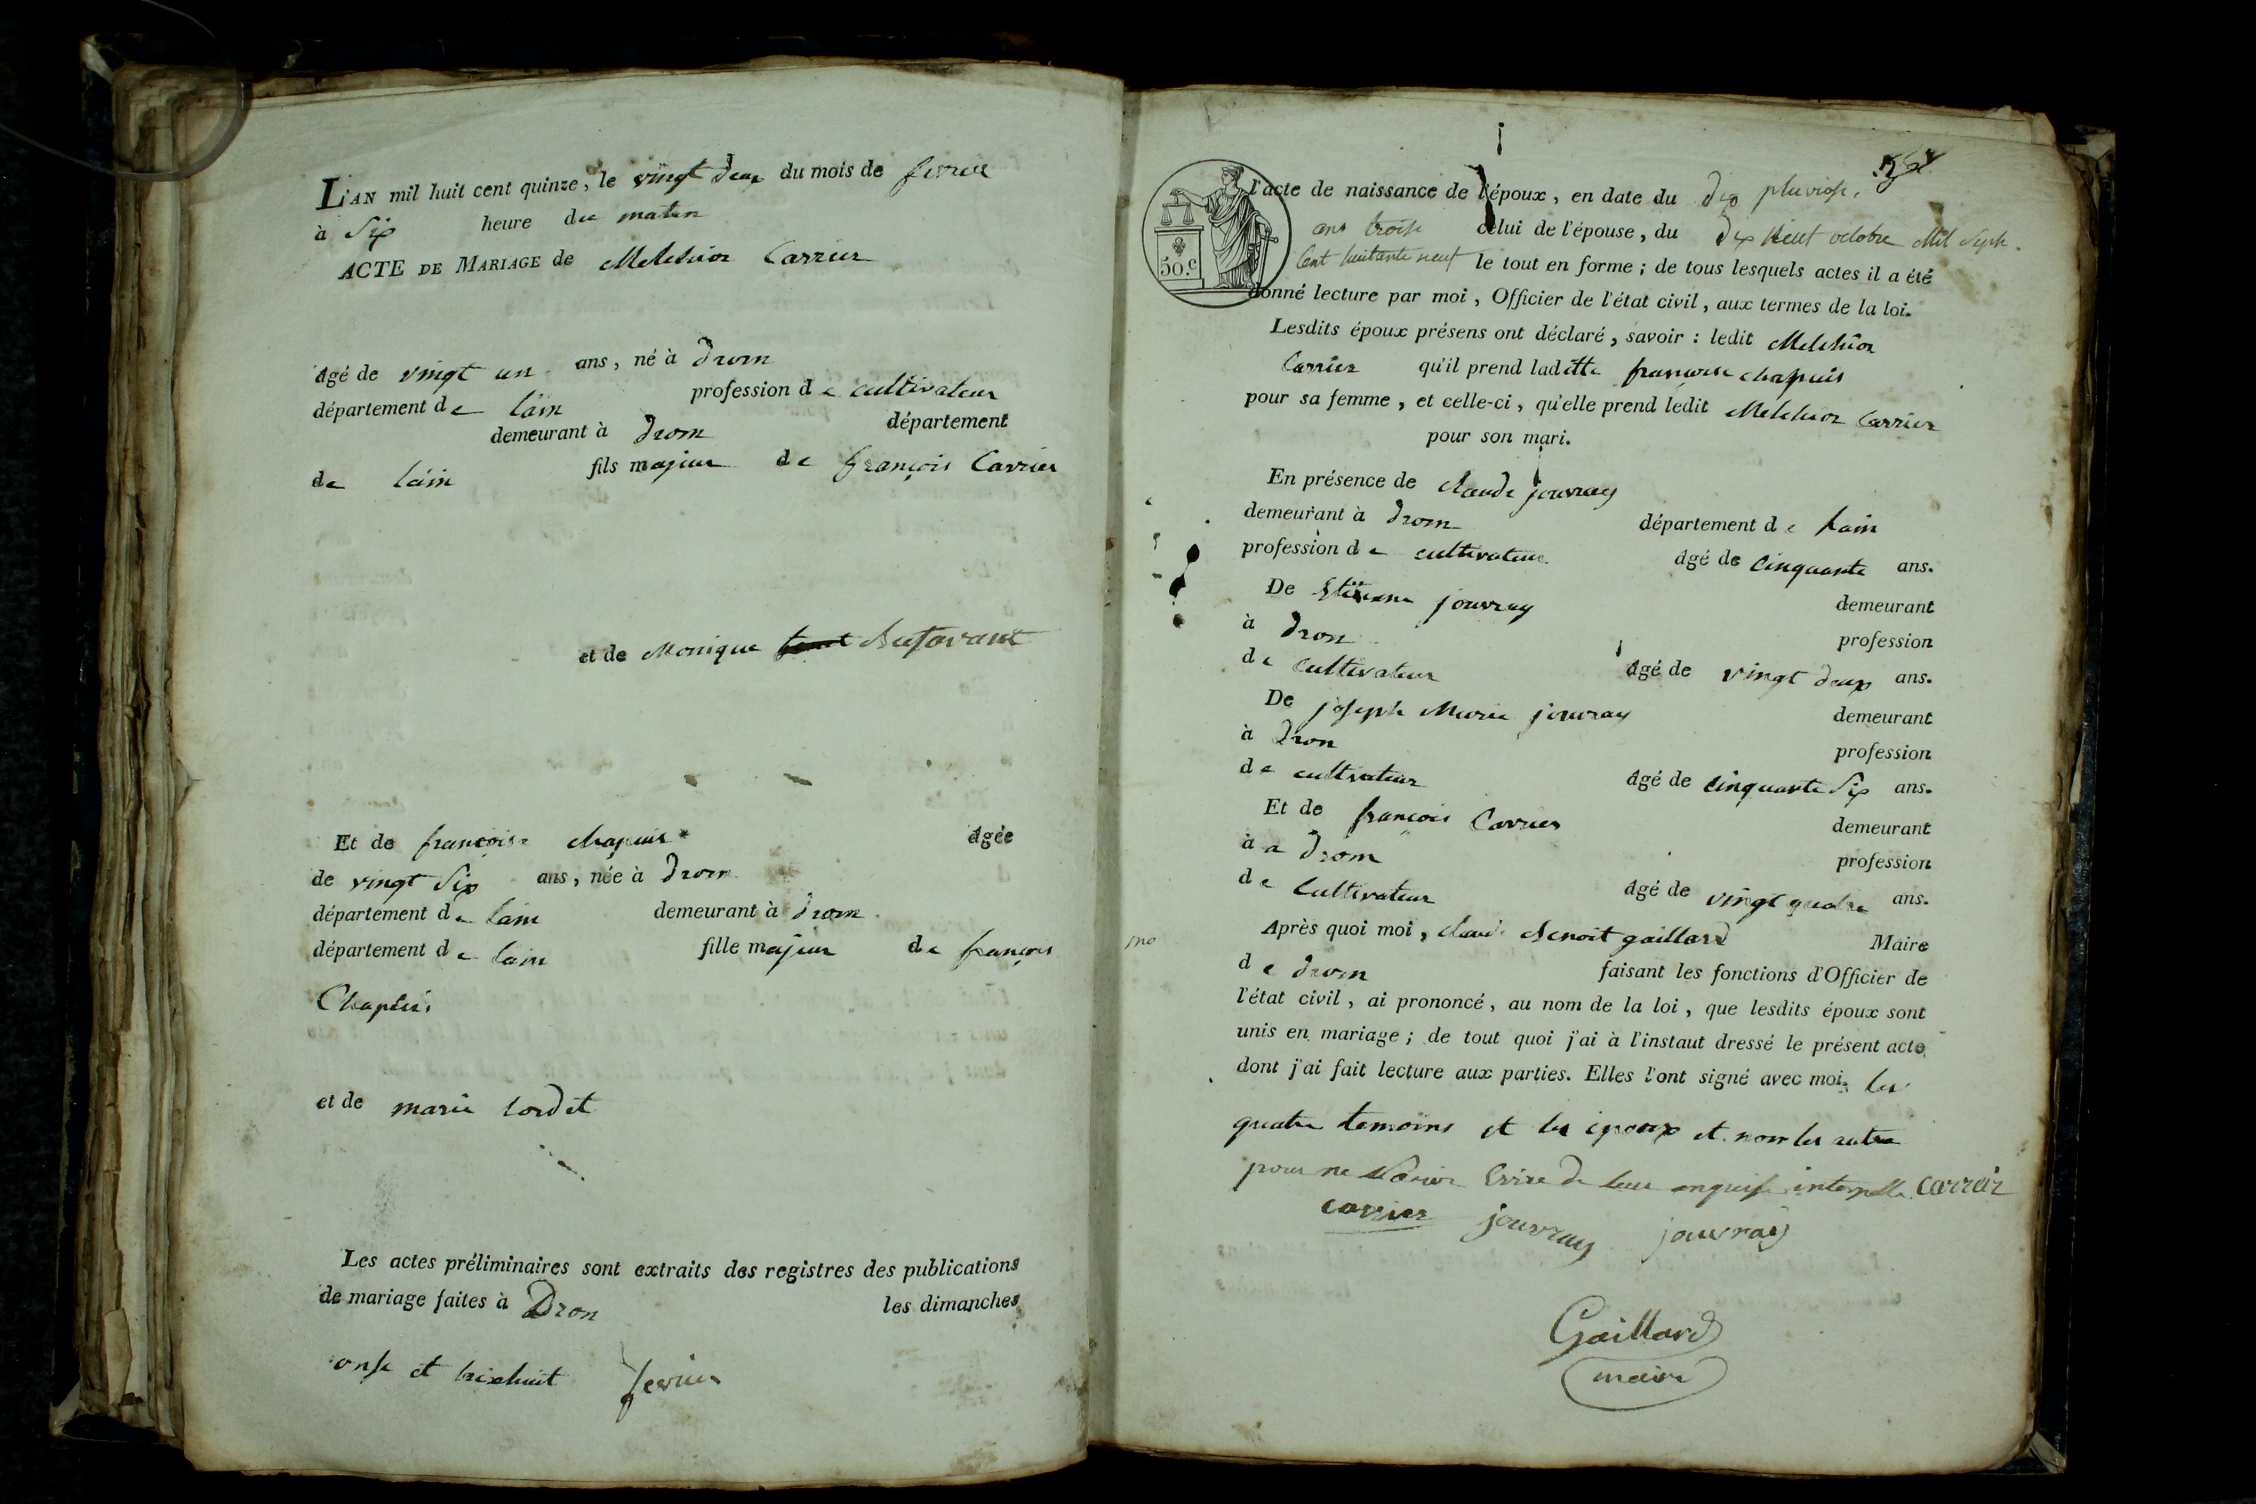 L'AN mil huit cent quinze, le vingt deux du mois de fevrier
à Six heure du matin
ACTE DE MARIAGE de Melchior Carrier
âgé de vingt un ans, né à drom
département de lain profession de cultivateur
demeurant à drom département
de lain fils majeur de françois Carrier
et de Monique
Et de françoise chapuis âgée
de vingt Six ans, née à drom
département de lain demeurant à drom
département de lain fille majeur de françois
Chapuis
et de marie Cordet
Les actes préliminaires sont extraits des registres des publications
de mariage faites à Dron les dimanches
onse et fevrier
l'acte de naissance de l'époux, en date du dix pluviose,
ans troise celui de l'épouse, du dix neuf octobre Mil Sept
Cent huitante neuf le tout en forme ; de tous lesquels actes il a été
donné lecture par moi, Officier de l'état civil, aux termes de la loi.
Lesdits époux présens ont déclaré, savoir : ledit Melchior
Carrier qu'il prend laditte françoise chapuis
pour sa femme, et celle-ci, qu'elle prend ledit Melchior Carrier
pour son mari.
50.c
En présence de claude jouvray
demeurant à drom département de lain
profession de cultivateur âgé de Cinquante ans.
De Etienne jouvray demeurant
à dron profession
de cultivateur âgé de vingt deux ans.
De joseph Marie jouvray demeurant
à dron profession
de cultivateur âgé de cinquante Six ans.
Et de françois Carrier demeurant
à a drom profession
de Cultivateur âgé de vingt quatre ans.
Après quoi moi, claude benoit gaillard Maire
de drom faisant les fonctions d'Officier de
l'état civil, ai prononcé, au nom de la loi, que lesdits époux sont
unis en mariage ; de tout quoi j'ai à l'instaut dressé le présent acte
dont j'ai fait lecture aux parties. Elles l'ont signé avec moi, les
quatre temoins et les epoux et non les autre
pour ne Savoir Ecrire de leur enquise interpelle carreir
carrier jouvray jouvray
Gaillard
maire